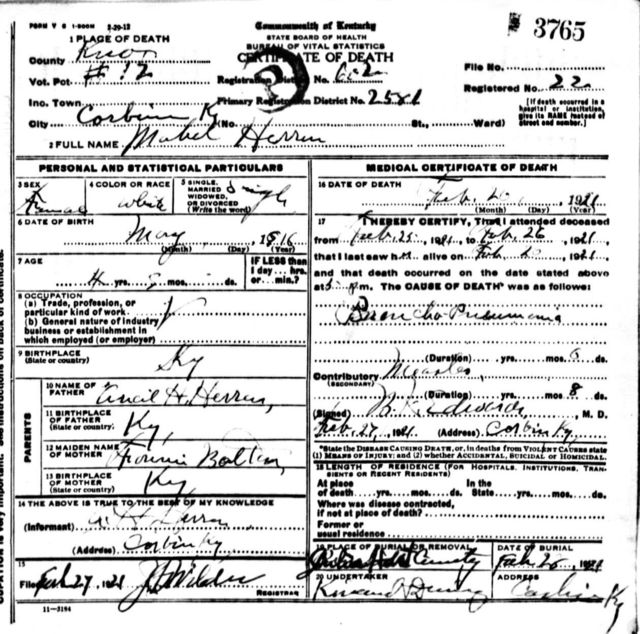 FORM V S 1-500M 2-29-12
Commonwealth of Kentucky
STATE BOARD OF HEALTH
BUREAU OF VITAL STATISTICS
CERTIFICATE OF DEATH
3765
1 PLACE OF DEATH
County Knox
Vot. Pct #12
Registration District No.
File No.
Inc. Town
Primary Registration District No. 2581
Registered No. 22
City Corbin Ky (No. St., Ward)
[If death occurred in a hospital or institution, give its NAME instead of street and number.]
2 FULL NAME Mabel Herren
PERSONAL AND STATISTICAL PARTICULARS
3 SEX Female
4 COLOR OR RACE white
5 SINGLE, MARRIED WIDOWED, OR DIVORCED (Write the word) Single
6 DATE OF BIRTH May 1916
(Month) (Day) (Year)
7 AGE 4 yrs. mos. ds.
IF LESS than 1 day... hrs. or... min.?
8 OCCUPATION
(a) Trade, profession, or particular kind of work
(b) General nature of industry business or establishment in which employed (or employer)
9 BIRTHPLACE (State or country) Ky
PARENTS
10 NAME OF FATHER H. Herren,
11 BIRTHPLACE OF FATHER (State or country) Ky,
12 MAIDEN NAME OF MOTHER
13 BIRTHPLACE OF MOTHER (State or country) Ky,
14 THE ABOVE IS TRUE TO THE BEST OF MY KNOWLEDGE
(Informant) H. Herren
(Address) Corbin Ky
15
Filed Feb 27, 1921 Wilder
REGISTRAR
11-3184
MEDICAL CERTIFICATE OF DEATH
16 DATE OF DEATH Feb. 1921
(Month) (Day) (Year)
17 I HEREBY CERTIFY, That I attended deceased
from Feb. 25, 1921, to Feb. 26, 1921,
that I last saw h alive on Feb. 1921,
and that death occurred on the date stated above
at m. The CAUSE OF DEATH* was as follows:
Broncho Pneumonia
(Duration) yrs. mos. 6 ds.
Contributory Measles,
(SECONDARY)
(Duration) yrs. mos. 8 ds.
(Signed) Edwards, M. D.
Feb. 27, 1921 (Address) Corbin Ky,
*State the DISEASE CAUSING DEATH, or, in deaths from VIOLENT CAUSES state (1) MEANS OF INJURY; and (2) whether ACCIDENTAL, SUICIDAL or HOMICIDAL.
18 LENGTH OF RESIDENCE (FOR HOSPITALS, INSTITUTIONS, TRANSIENTS OR RECENT RESIDENTS)
At place of death yrs. mos. ds. In the State yrs. mos. ds.
Where was disease contracted, if not at place of death?
Former or usual residence
19 PLACE OF BURIAL OR REMOVAL
DATE OF BURIAL Feb 1921
20 UNDERTAKER
ADDRESS Corbin Ky